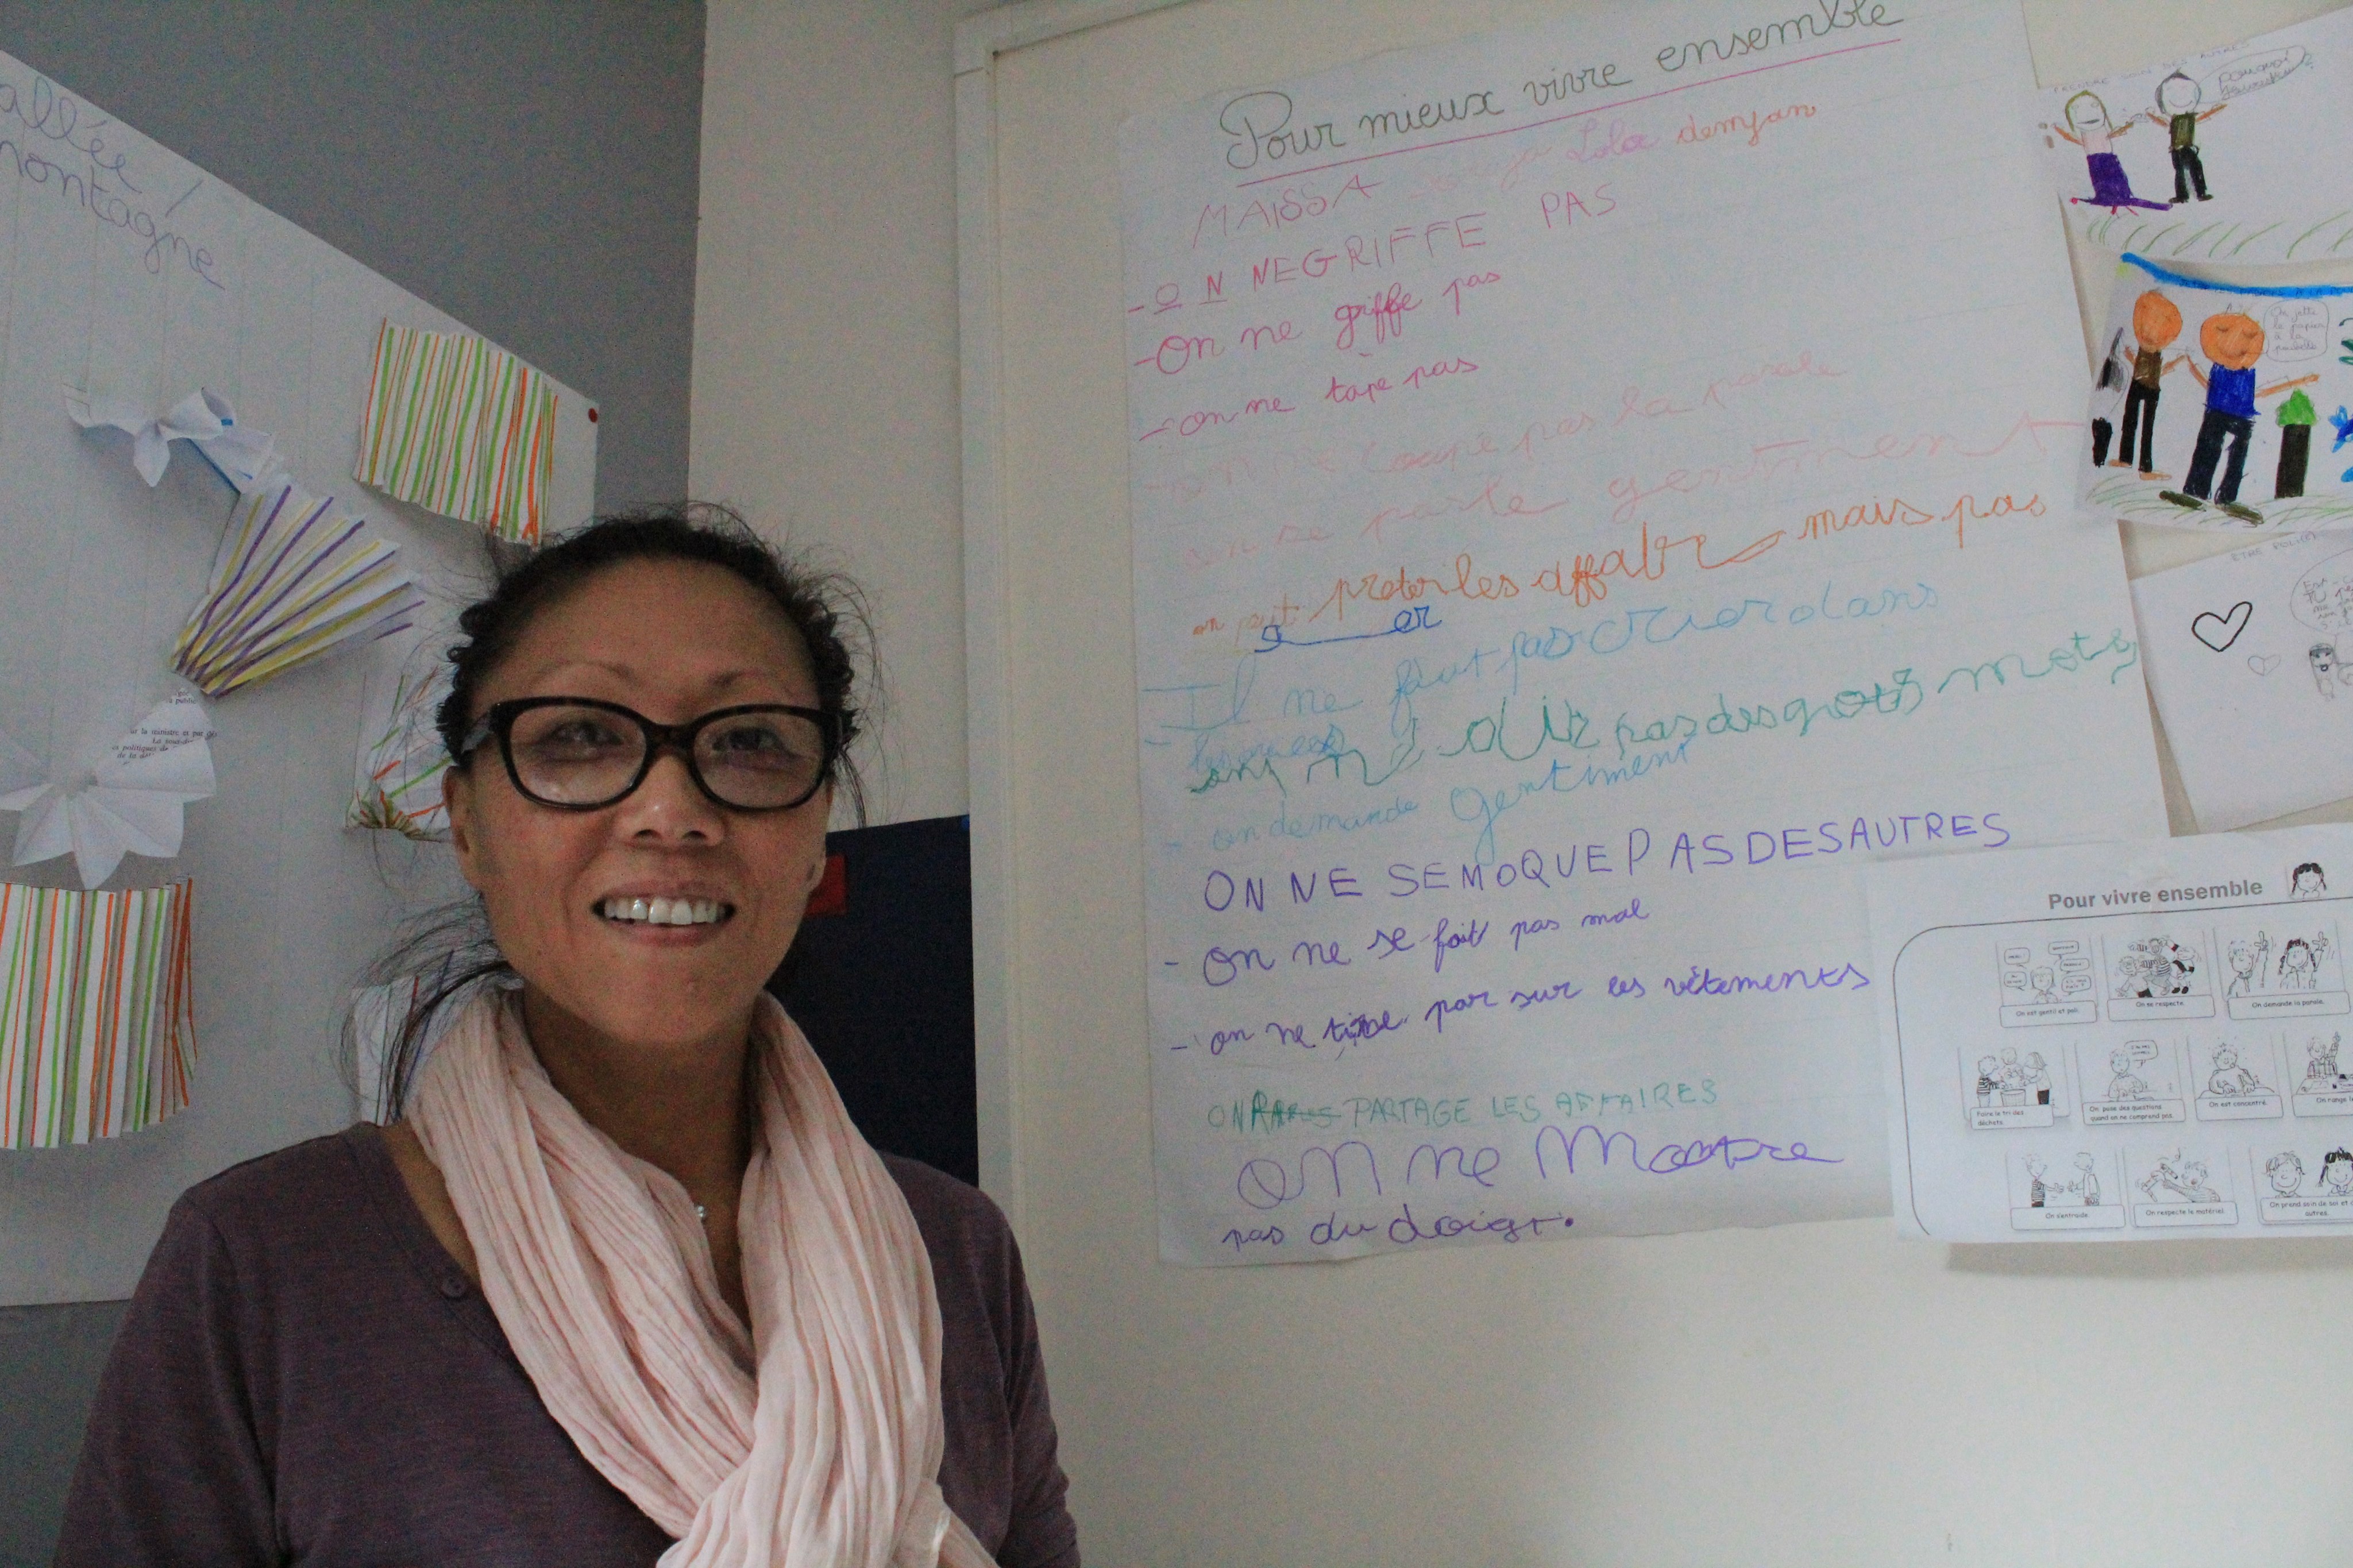 allée /
montagne
Pour mieux vivre ensemble
MAISSA Lola demjan
- ON NEGRIFFE PAS
- On ne griffe pas
- on ne tape pas
- on ne coupe pas la parole
on se parle gentiment
on peut preter les affaire mais pas
er
Il ne faut pas crier dans
on ne dir pas des gros mots
- on demande gentiment
ON NE SEMOQUEPASDESAUTRES
- On ne se fait pas mal
- on ne tire par sur les vêtements
ON PARTAGE LES AFFAIRES
ON ne Montre
pas du doigt.
On jette
le papier
à la
poubelle
Pour vivre ensemble
On est gentil et poli.
On se respecte.
On demande la parole.
Faire le tri des
déchets.
On pose des questions
quand on ne comprend pas.
On est concentré.
On range
On s'entraide.
On respecte le matériel.
On prend soin de soi et
autres.